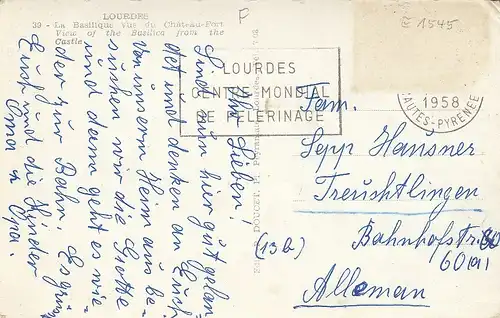 LOURDES
39 - La Basilique vue du Château-Fort
View of the Basilica from the
Castle
P
€ 1545
LOURDES
CENTRE MONDIAL
DE PELERINAGE
1958
HAUTES-PYRENEE
Ihr Lieben!
Sind nun hier gut gelan
det und denken an Euch
Von unserm Heim aus be
suchen wir die Grotte
und dann geht es wie
der zur Bahn. Es grüßt
Euch und die Kinder
Oma u Opa.
Fam.
Sepp Hausner
Treuchtlingen
Bahnhofstr.
60
(13b)
Alleman